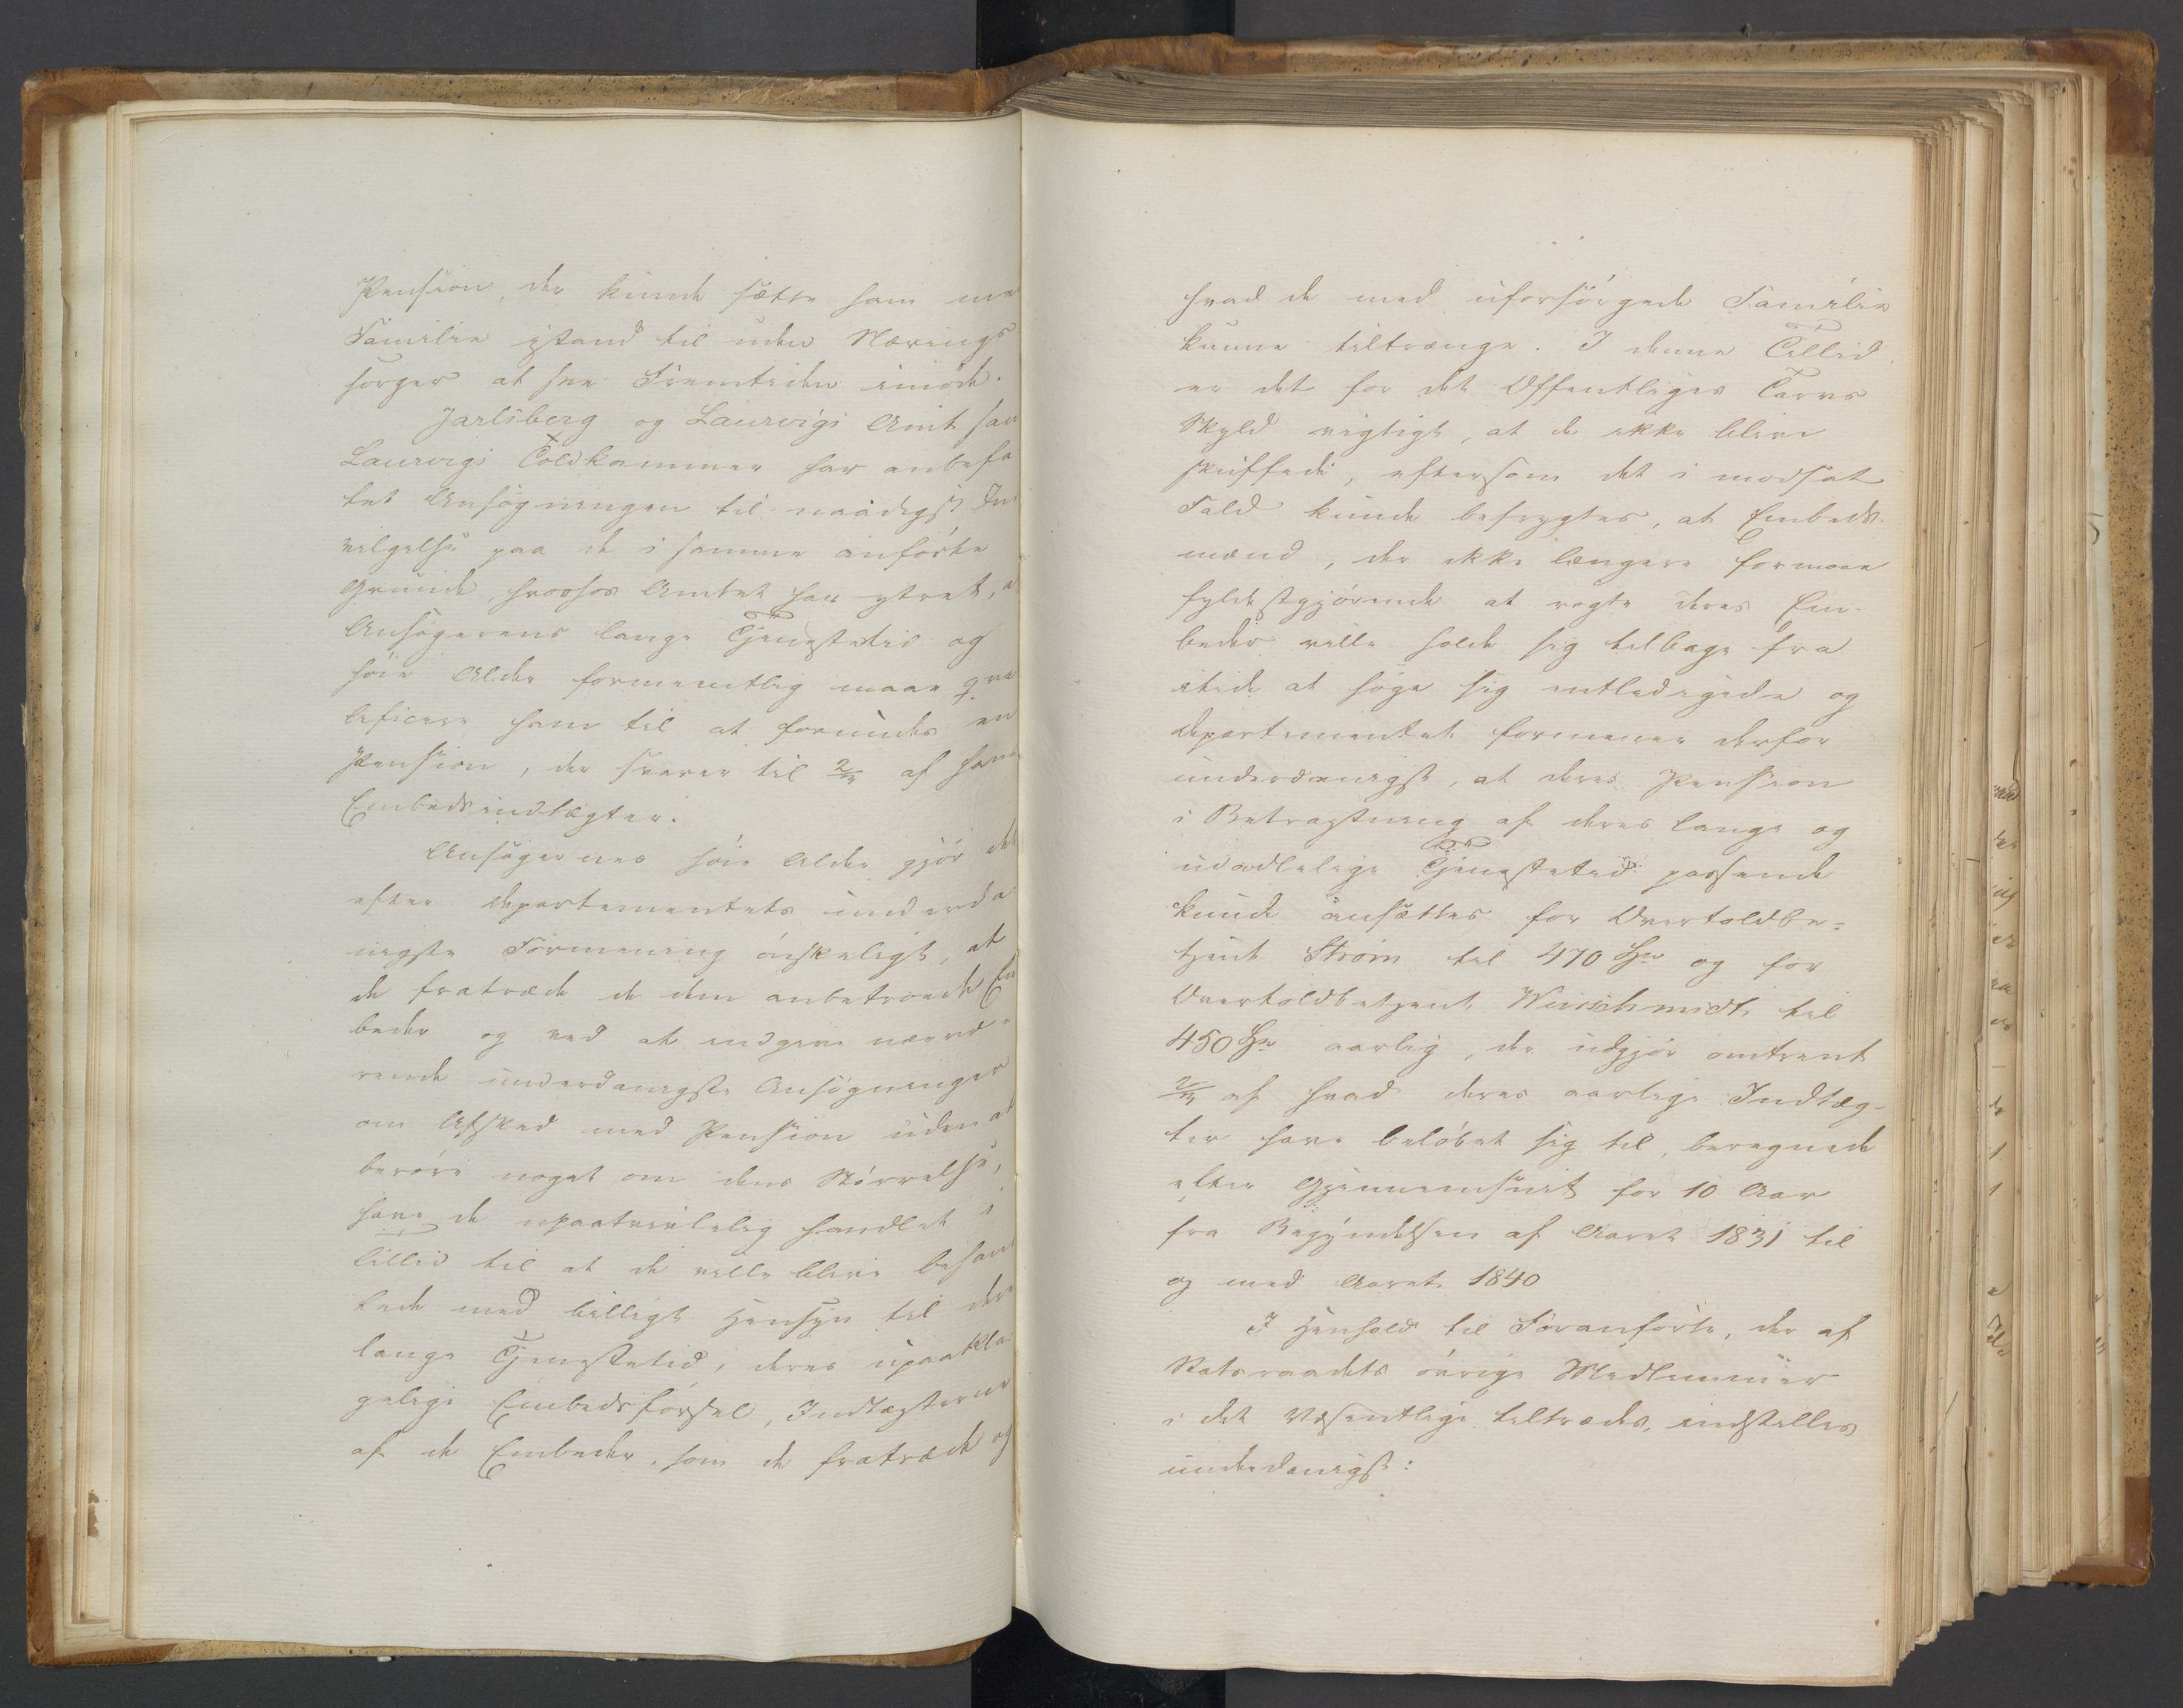 Pension, der kunde sætte ham me
Familie istand til uden Nærings
sorger at see Fremtiden imøde.
Jarlsberg og Laurvigs Amt sam
Laurvigs Toldkammer har anbefa
let Ansøgningen til naadigst Be
vilgelse paa de i samme anførte
Grunde, hvorhos Amtet har ytret, a
Ansøgerens lange Tjenestetid og
høie Alder formeentlig maae qva
lificere ham til at forundes en
Pension, der svarer til 2/3 af hans
Embedsindtægter.
Ansøgernes høie Alder gjør det
efter Departementets underda
nigste Formening ønskeligt, at
de fratræde de dem anbetroede Em
beder og ved at indgive nærvæ-
rende underdanigste Ansøgninger
om Afsked med Pension uden at
berøre noget om dens Størrelse,
have de upaatvivlelig handlet i
Tillid til at de ville blive behand
lede med billigt Hensyn til dere
lange Tjenestetid, deres upaakla
gelige Embedsførsel, Indtægterne
af de Embeder, som de fratræde og
hvad de med uforsørgede Familie
kunne tiltrænge. I denne Tillid
er det for det Offentliges Tarvs
Skyld vigtigt, at de ikke blive
skuffede, eftersom det i modsat
Fald kunde befrygtes, at Embeds-
mænd, der ikke længere formaae
fyldestgjørende at røgte deres Em-
beder ville holde sig tilbage fra
itide at søge sig entledigede og
Departementet formener derfor
underdanigst, at deres Pension
i Betragtning af deres lange og
udadlelige Tjenestetid passende
kunde ansættes for Overtoldbe-
tjent Strøm til 470 Spd og for
Overtoldbetjent Weischmidt til
450 Spd aarlig, der udgjør omtrent
2/3 af hvad deres aarlige Indtæg-
ter have beløbet sig til, beregnede
efter Gjennemsnit for 10 Aar
fra Begyndelsen af Aaret 1831 til
og med Aaret 1840
I Henhold til Foranførte, der af
Statsraadets øvrige Medlemmer
i det Væsentlige tiltrædes, indstilles
underdanigst: